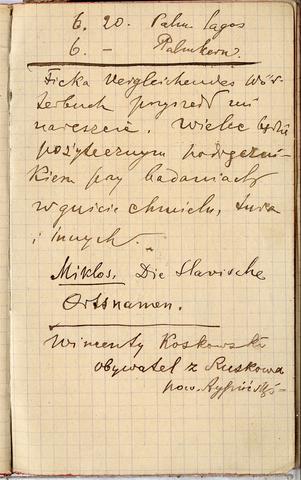 6. 20. Palm. Lagos
6. — Palmkern.
Ficka Vergleichendes Wör-
terbuch przyszedł mi
nareszcie. Wielce będzie
pożytecznym podręczni-
kiem przy badaniach
w guście chmielu, tura
i innych.
Miklos. Die Slavische
Ortsnamen.
Wincenty Koskowski
obywatel z Ruskowa
pow.